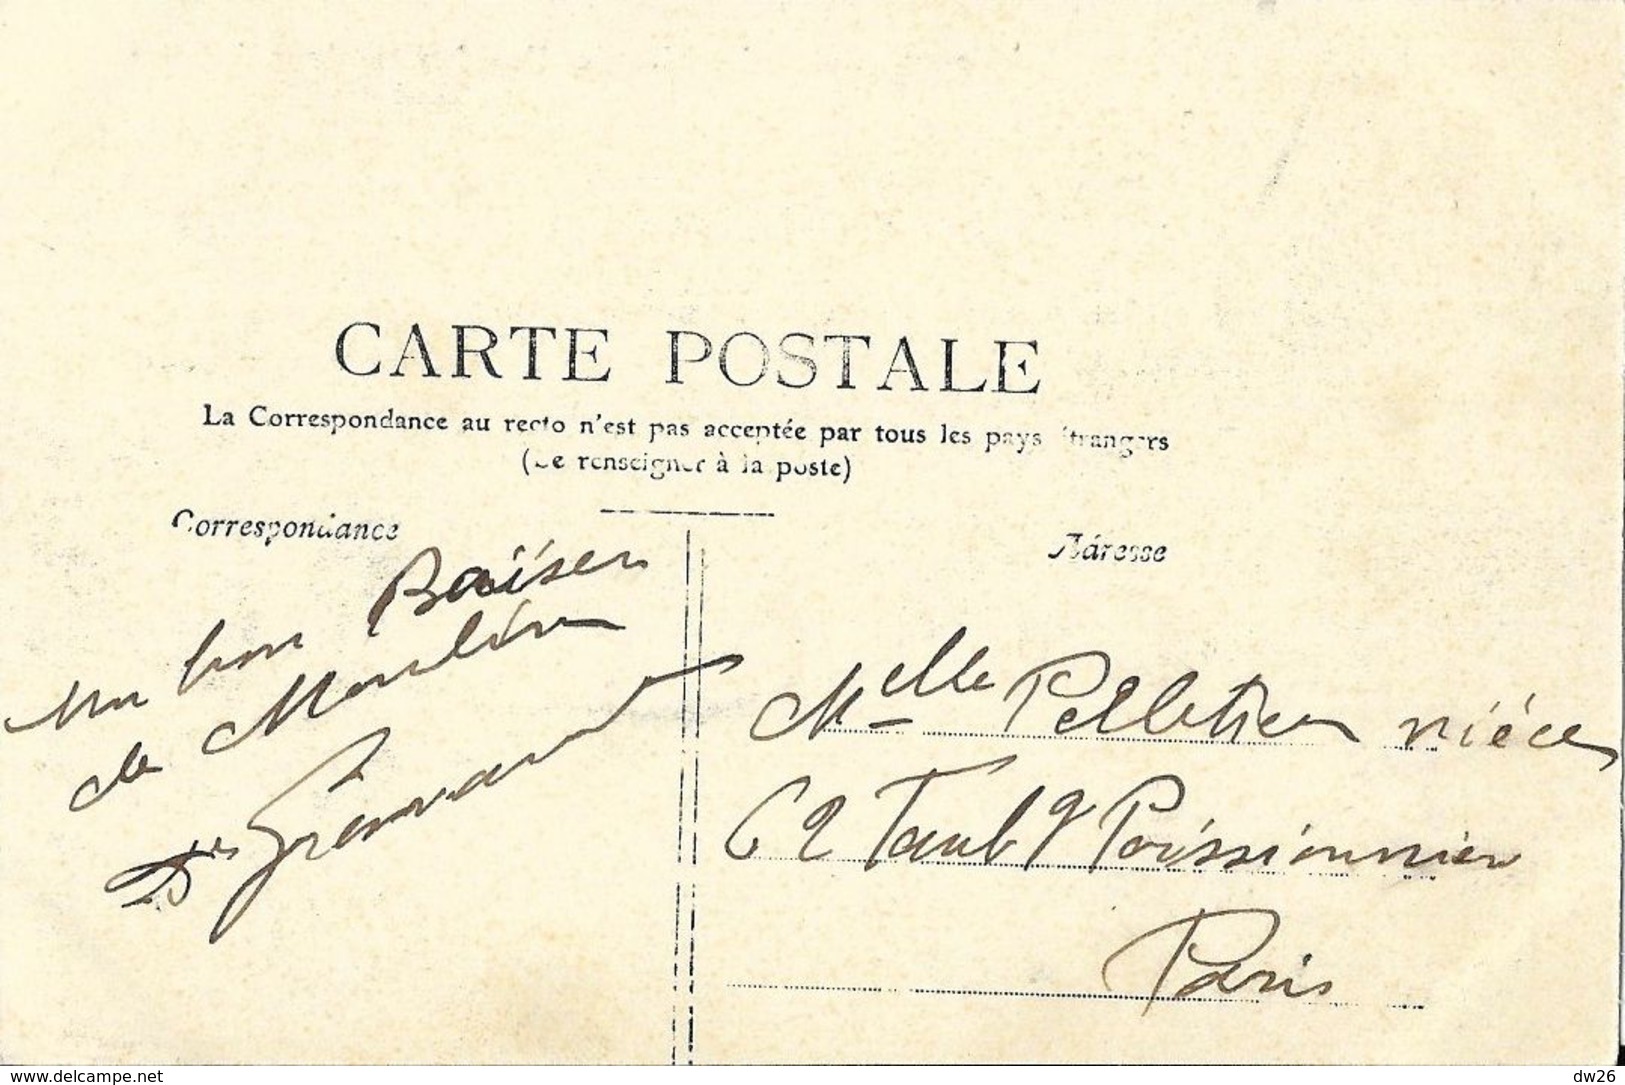 CARTE POSTALE
La Correspondance au recto n'est pas acceptée par tous les pays étrangers
(Se renseigner à la poste)
Correspondance
Adresse
Un bon Baiser
de Moulin
Melle Pelletier nièce
62 Faub g Poissionnier
Paris
www.delcampe.net
dw26